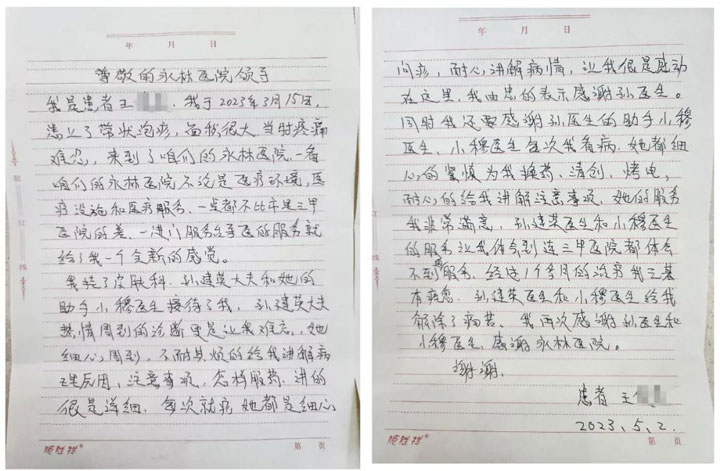 年 月 日
尊敬的永林医院领导
我是患者王 我于2023年3月15日,
患上了带状疱疹,面积很大当时疼痛
难忍,来到了咱们的永林医院.一看
咱们的永林医院不论是医疗环境,医
疗设施和医疗服务.一点都不比市里三甲
医院的差.一进门服务导医的服务就
给了我一个全新的感觉。
我转了皮肤科.孙建英大夫和她的
助手小穆医生接待了我,孙建英大夫
热情周到的诊断更是让我难忘,她
细心周到,不耐其烦的给我讲解病
理反用,注意事项,怎样服药.讲的
很是详细.每次就疹她都是细心
第 页
年 月 日
问疹,耐心讲解病情,让我很是感动
在这里.我由忠的表示感谢孙医生。
同时我还要感谢孙医生的助手小穆
医生.小穆医生每次我看病.她都细
心的 烦为我 药.清创,烤电,
耐心的给我讲解注意事项,她的服务
我非常满意,孙建英医生和小穆医生
的服务让我体会到连三甲医院都体会
不到的服务.经过1个多月的治疗我已基
本痊愈.孙建英医生和小穆医生给我
解除了病苦.我再次感谢孙医生和
小穆医生.感谢永林医院。
谢谢.
患者 王
2023.5.2.
第 页